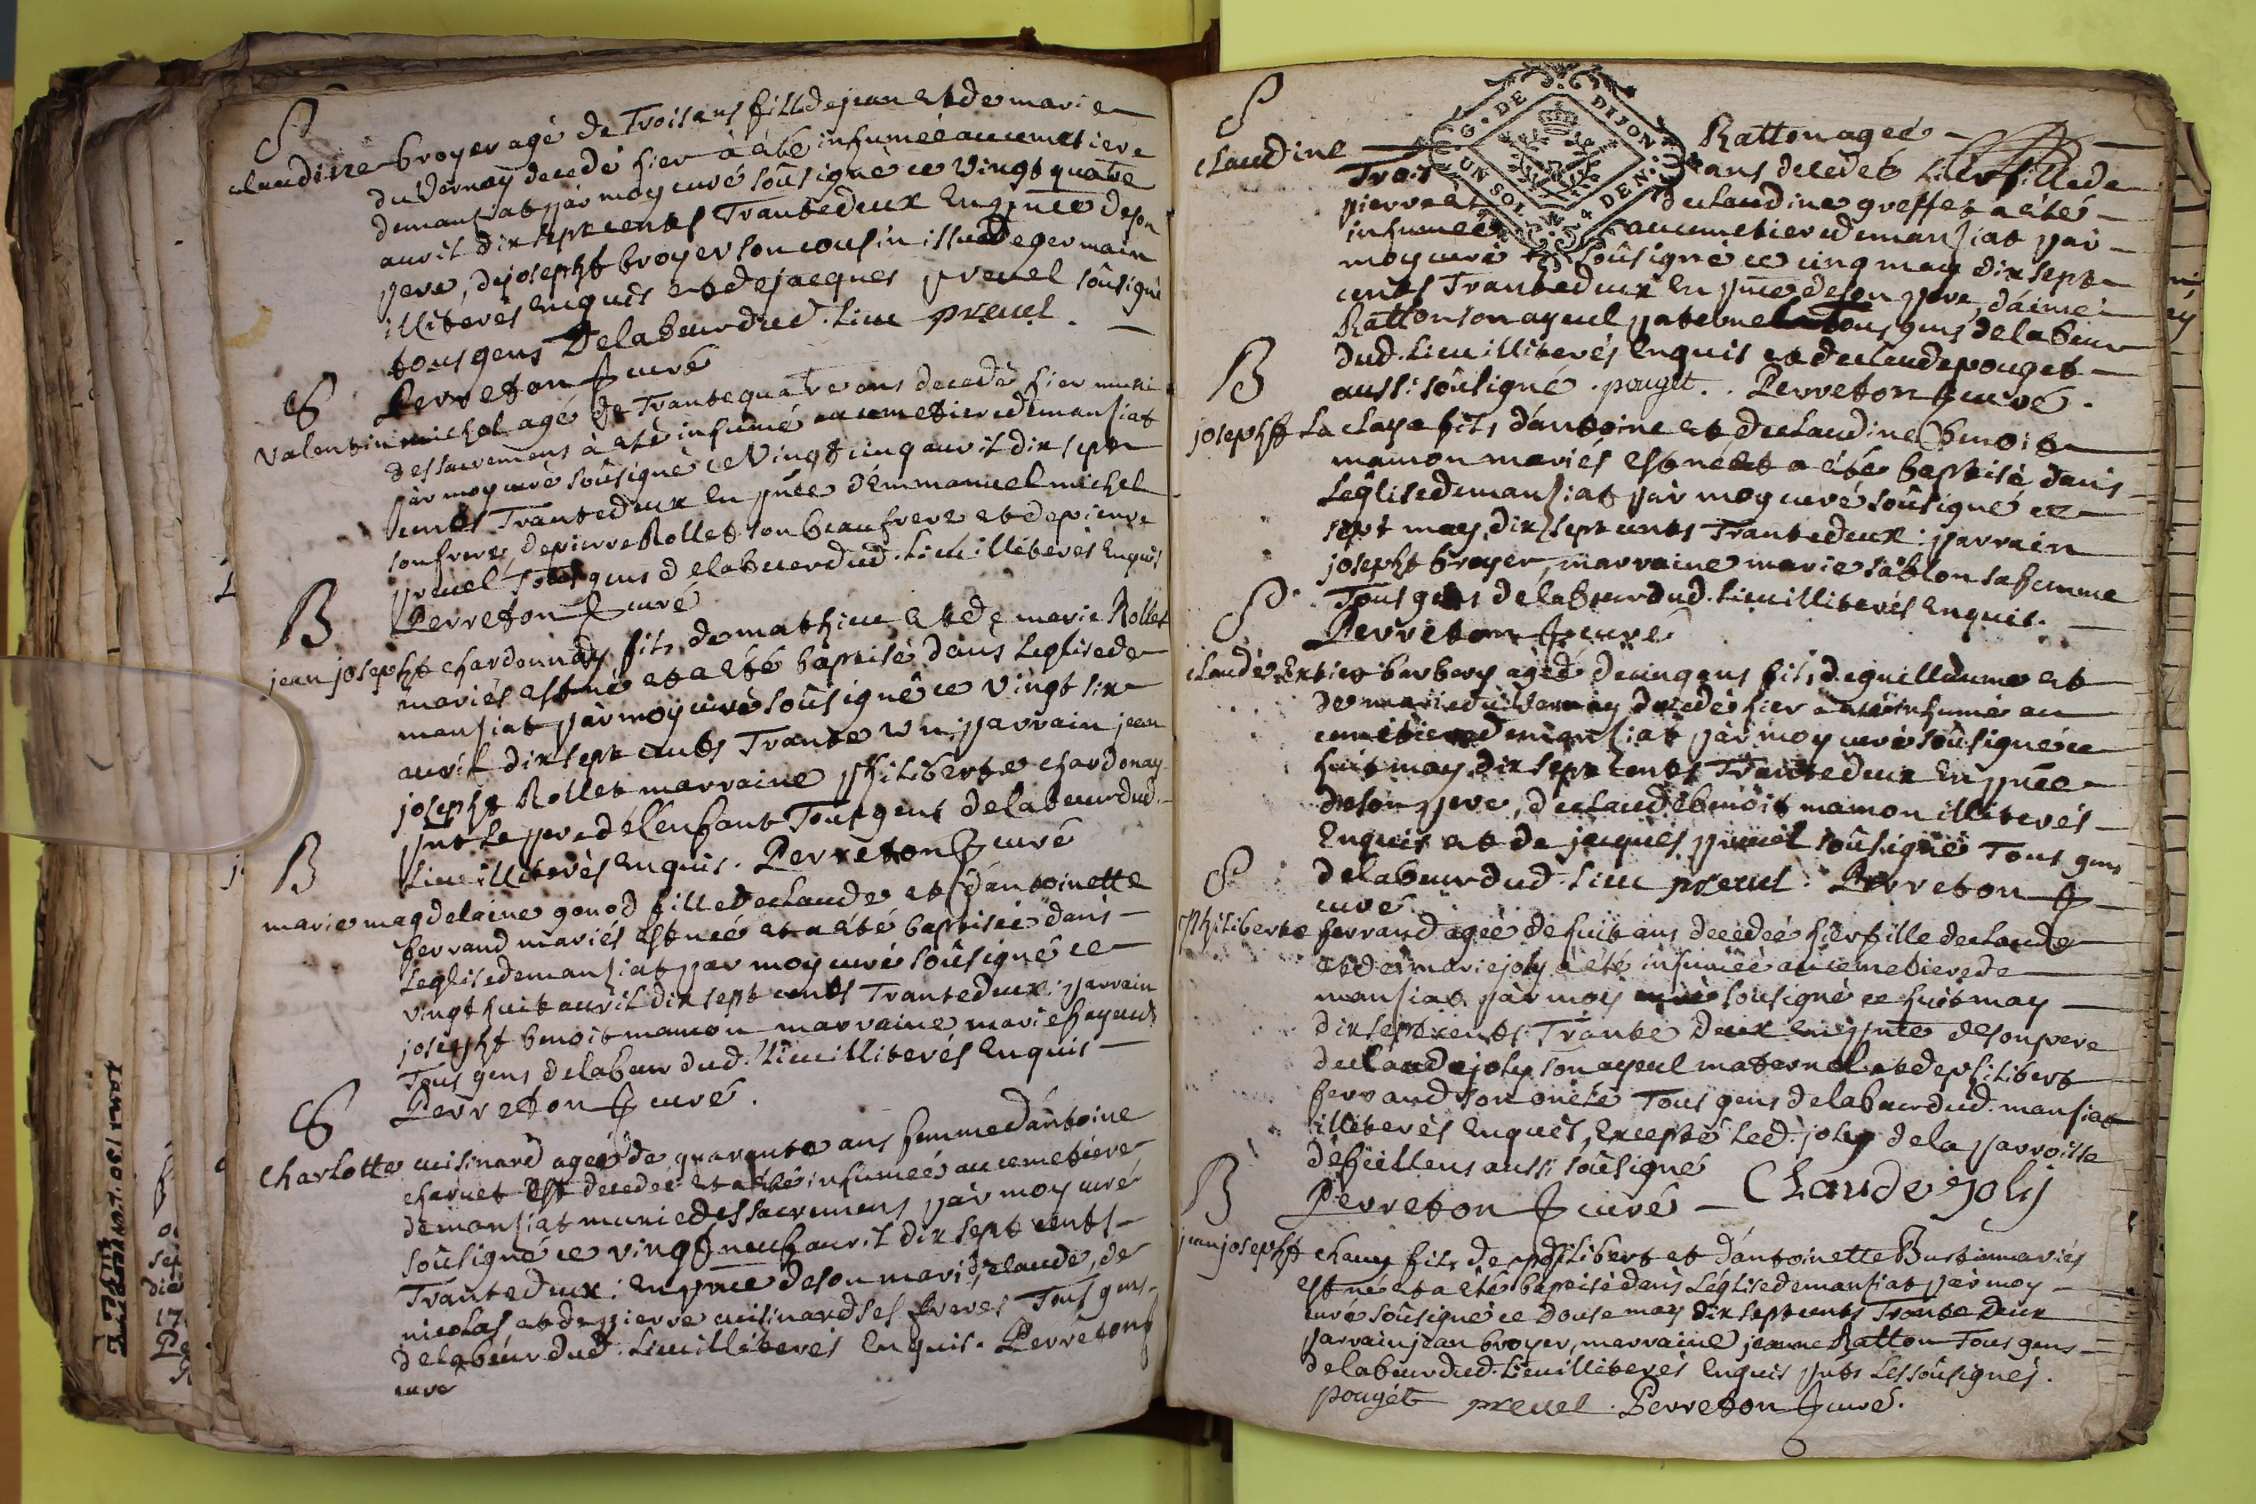 S
claudine broyer agé de Trois ans fille de jean et de marie
du Vernay decedé hier à été inhumée au cimetiere
de mansiat par moy curé soûsigné ce vingt quatre
avril dix sept cents Trante deux En pnce de son
pere, de josepht broyer son cousin issu de germain
illiterés Enquis et de jacques preuel soûsigné
tous gens De labeur dud. Lieu preuel
Perreton curé
S
Valentin michel agé de Trante quatre ans decedé hier muni
des sacremens à été inhumé au cimetiere de mansiat
par moy curé soûsigné ce Vingt cinq avril dix sept
cents Trante deux En pnce d'Emmanuel michel
son frere, de pierre Rollet son beau frere et de pierre
preuel Tous gens de labeur dud. Lieu illiterés Enquis
Perreton curé
B
jean josepht chardonnay fils de mathieu et de marie Rollet
mariés est né et a été baptisé dans Leglise de
mansiat par moy curé soûsigné ce vingt six
avril dix sept cents Trante un: parrain jean
josepht Rollet marraine philiberte chardonay
pnt Le pere de l'enfant Tous gens de labeur dud.
Lieu illiterés Enquis. Perreton curé
B
marie magdelaine gonod fille de claude et d'antoinette
ferrand mariés est née et a été baptisée dans
Leglise de mansiat par moy curé soûsigné ce
vingt huit avril dix sept cents Trante deux: parrain
josepht benoit mamon marraine marie
Tous gens de labeur dud. Lieu illiterés Enquis
Perreton curé.
S
Charlotte cuisinard ageé de quarante ans femme d'antoine
charuet est decedeé et a été inhumeé au cimetiere
de mansiat munie des sacremens par moy curé
soûsigné ce vingt neuf avril dix sept cents
Trante deux: En pnce de son mari, de claude, de
nicolas et de pierre cuisinard ses freres Tous gens
de labeur dud. Lieu illiterés Enquis. Perreton
curé
S
G. DE DIJON
UN SOL 4 DEN.
claudine Ratton ageé
Trois ans decedeé hier fille de
pierre et de claudine greffet a été
inhumeé au cimetiere de mansiat par
moy curé soûsigné ce cinq may dix sept
cents Trante deux En pnce de son pere, d'aimé
Ratton son ayeul paternel Tous gens de labeur
dud. Lieu illiterés Enquis et de claude pouget
aussi soûsigné. pouget. Perreton curé.
B
josepht La claye fils d'antoine et de claudine benoit
mamon mariés est né et a été baptisé dans
Leglise de mansiat par moy curé soûsigné ce
sept may dix sept cents Trante deux: parrain
josepht broyer, marraine marie sablon sa femme
Tous gens de labeur dud. Lieu illiterés Enquis.
Perreton curé
S
claude barbery agé de cinq ans fils de guillaume et
de marie du Vernay decedé hier a été inhumé au
cimetiere de mansiat par moy curé soûsigné ce
huit may dix sept cents Trante deux En pnce
de son pere, de claude benoit mamon illiterés
Enquis et de jacques preuel soûsigné Tous gens
de labeur dud. Lieu preuel. Perreton
curé
S
philiberte ferrand ageé de huit ans decedeé hier fille de claude
et de marie joly à été inhumeé au cimetiere de
mansiat par moy curé soûsigné ce huit may
dix sept cents Trante deux En pnte de son pere
de claude joly son ayeul maternel et de philibert
ferrand son oncle Tous gens de labeur dud. mansiat
illiterés Enquis, Excepté Led. joly de la parroisse
de feillens aussi soûsigné
Perreton curé Claude joly
B
jean josepht chany fils de philibert et d'antoinette mariés
est né et a été baptisé dans Leglise de mansiat par moy
curé soûsigné ce douse may dix sept cents Trante deux
parrain jean broyer, marraine jeanne Ratton Tous gens
de labeur dud. Lieu illiterés Enquis pnts Les soûsignés.
pouget preuel. Perreton curé.